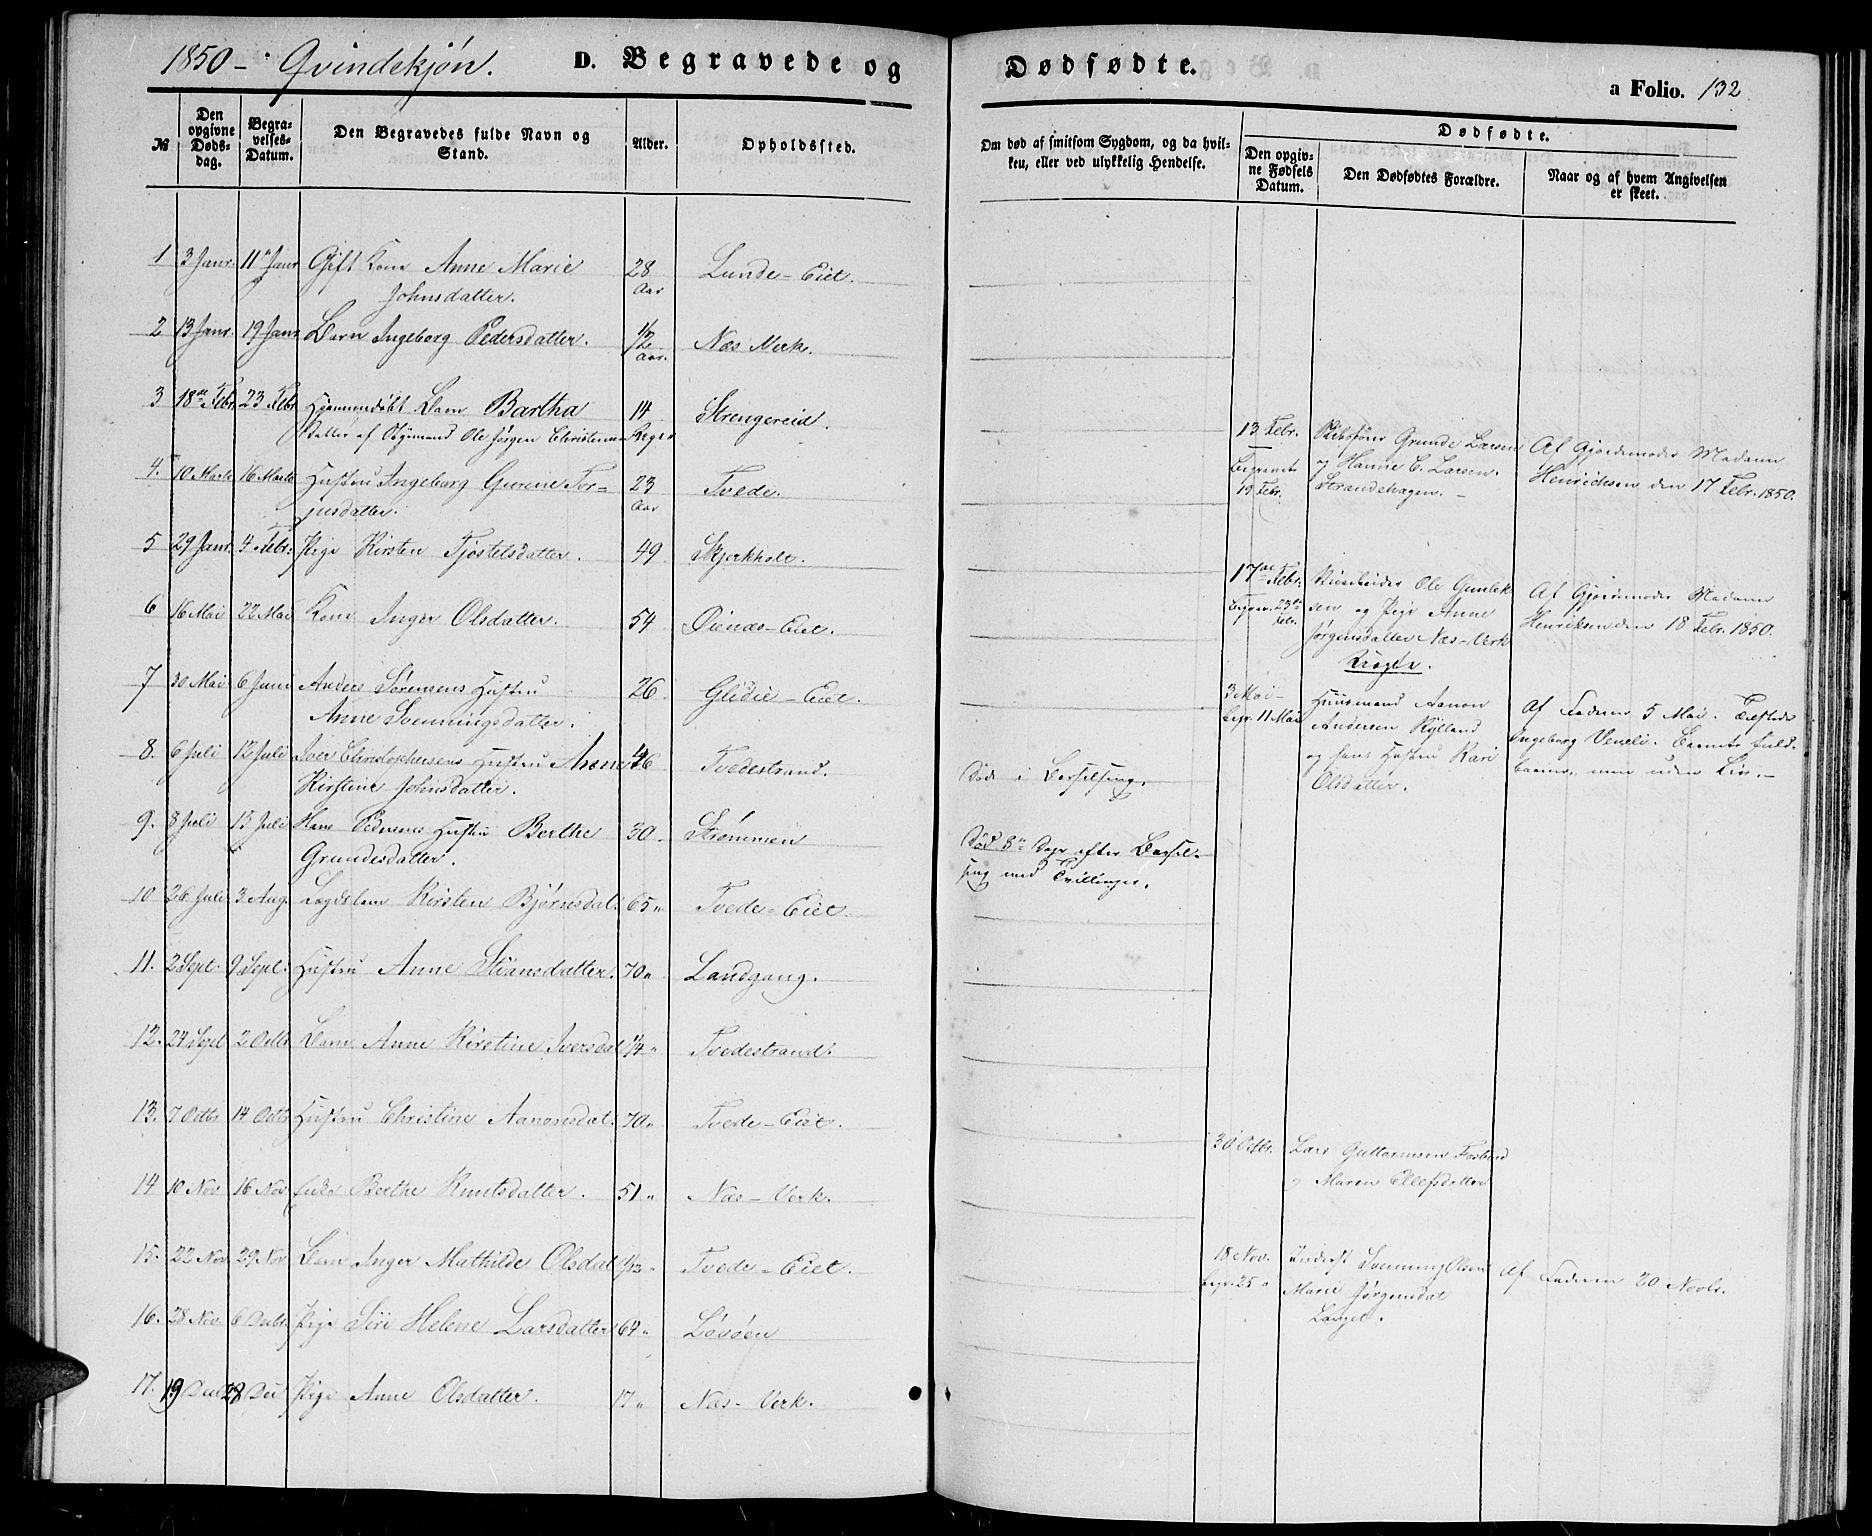 1850 - Qvindekjön. D. Begravede og Dødfødte.
a Folio. 132
№
Den opgivne Døds-dag.
Begra-velses-Datum.
Den Begravedes fulde Navn og Stand.
Alder.
Opholdssted.
Om død af smitsom Sygdom, og da hvil-ken, eller ved ulykkelig Hendelse.
Dødfødte.
Den opgiv-ne Fødsels Datum.
Den Dødfødtes Forældre.
Naar og af hvem Angivelsen er skeet.
1 3 Janr. 11 Janr Gift Kone Anne Marie 28 Lunde-Eiet.
Johnsdatter. Aar
2 13 Janr. 19 Janr Barn Ingeborg Pedersdatter. 1/2 Næs Verk.
Aar.
3 18de Febr 23 Febr Hjemmedøbt Barn Bartha 14 Strengereid.
Datter af Ole Jørgen Christensen Dage
13 Febr. Grunde Larsen Af Gjordemoder Madam
Begravet og Hanne C. Larsen. Henrichsen den 17 Febr. 1850.
19 Febr. Strandehagen. -
4. 10 Marts 16 Marts Hustru Ingeborg Gurine Tor- 23 Tvede.
jusdatter. Aar
5 29 Janr. 4 Febr. Pige Kirsten Tjøstelsdatter. 49 Skjerkholt.
17de Febr. Ole Gunlek- Af Gjordemoder Madam
Begrav. 23de sen og Pige Anne Henriksen den 18 Febr. 1850.
Febr. Jørgensdatter Næs-Verk
Uægte.
6 16 Mai 22 Mai Kone Inger Olsdatter. 54 Øienæs-Eiet.
7 30 Mai 6 Juni Anders Sørensens Hustru 26. Glidie-Eiet.
Anne Svenningsdatter.
3 Mai - Huusmand Aanon Af Faderen 5 Mai.
begr. 11 Mai Andersen Rylland Ingeborg Veneli. Barnet fuld-
og hans Hustru Kari baaren, men uden Liv. -
Olsdatter.
8. 6 Juli 12 Juli Iver Christophersens Hustru Anne 46 Tvedestrand. Død i Barselseng.
Kirstine Johnsdatter.
9. 8 Juli 15 Juli Hans Hustru Berthe 30. Strømmen Død 8de Dage efter Barsel-
Grundesdatter. seng med Tvillinger.
10 26 Juli 3 Aug. Lægdslem Kirsten Bjørnsdat. 65 " Tvede-Eiet.
11. 2 Sept. 9 Sept. Hustru Anne Stiansdatter. 70 " Landgang.
12. 24 Sept 2 Octbr Barn Anne Kirstine Iversdat 1/4 " Tvedestrand.
13. 7 Octbr 14 Octbr Hustru Christine Aanonsdat. 70 " Tvede-Eiet.
30 Octbr. Lars Guttormsen
og Maren Ellefsdatter
14 10 Nov 16 Nov Enke Berthe Knutsdatter. 51 " Næs-Verk.
15. 22 Nov 29 Nov Barn Inger Mathilde Olsdat 1/12 " Tvede-Eiet.
18 Nov. Inderst Svenning Olsen Af Faderen 20 Novbr.
begr. 25 " Marie Jørgensdat
Lauget.
16. 28 Nov. 6 Decbr. Pige Siri Helene Larsdatter 64 " Løvøen
17. 19 Decbr 28 Dec Pige Anne Olsdatter. 17 " Næs-Verk.